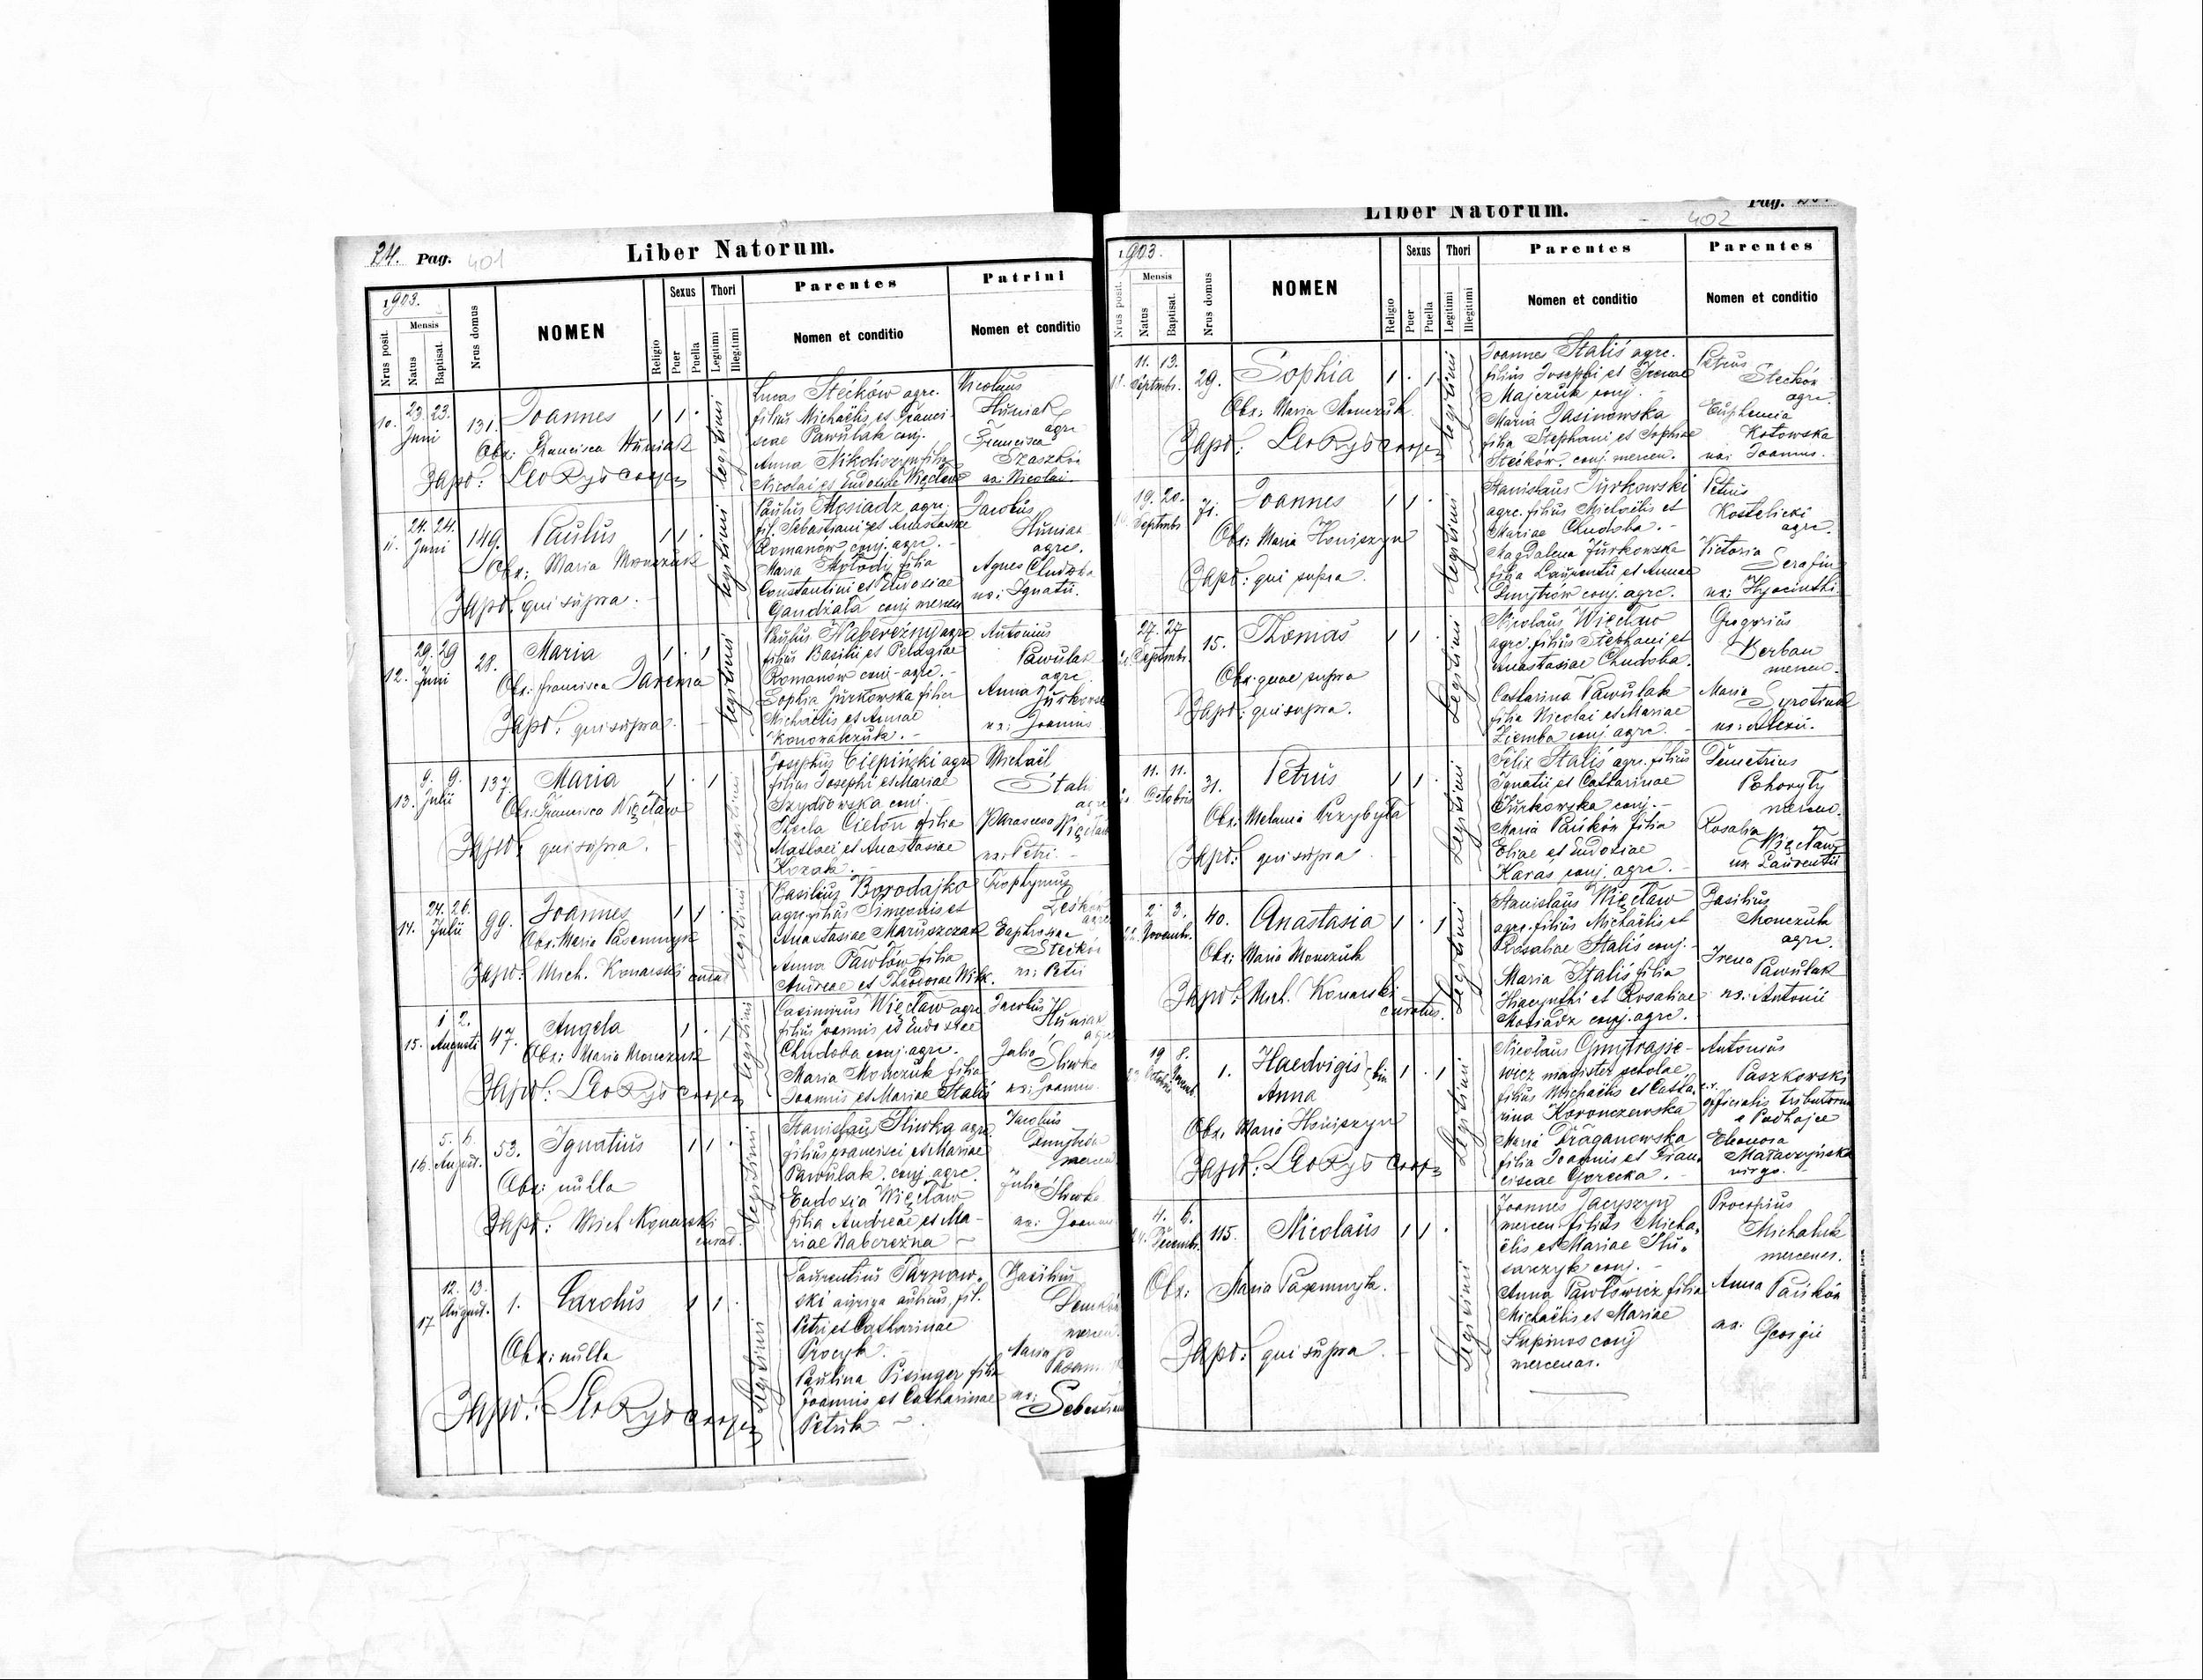 24. Pag. 401
Liber Natorum.
1903.
Nrus posit.
Mensis
Natus
Baptisat.
Nrus domus
NOMEN
Religio
Sexus
Puer
Puella
Thori
Legitimi
Illegitimi
Parentes
Nomen et conditio
Patrini
Nomen et conditio
10.
23. 23.
Juni
131.
Joannes
1 1 .
Obx: Francisca Huniak
Bapt: Leo Ryś cooper
legitimi
Lucas Stećków agrc.
filius Michaëlis et Franci-
scae Pawulak conj.
Anna Nikoliszyn filia
Nicolai et Eudoxiae Więcław
Nicolaus
Huniak
agrc
Francisca
Szaszków
ux: Nicolai
11.
24. 24.
Juni
149.
Paulus
1 1 .
Obx: Maria Monczuk
Bapt: qui supra.
legitimi
Paulus Mosiadz agrc.
fil. Sebastiani et Anastasiae
Romanow conj. agrc. -
Maria Mołody filia
Constantini et Eudoxiae
Gandziała conj mercen
Jacobus
Huniak
agrc.
Agnes Chudoba
ux: Ignatii.
12.
29. 29
Juni
28.
Maria
1 . 1
Obx: Francisca Jarema
Bapt: qui supra.
legitimi
Paulus Nabereżny agrc
filius Basilii et Pelagiae
Romanow conj-agrc. -
Sophia Jurkowska filia
Michaëlis et Annae
Konowalczuk. -
Antonius
Pawulak
agrc
Anna Jurkows
ux: Joannis
13.
9. 9.
Julii
137.
Maria
1 . 1
Obx: Francisca Więcław
Bapt: qui supra.
legitimi
Josephus Ciepiński agrc
filius Josephi et Mariae
Szydłowska conj. -
Thecla Cieloń filia
Mathaei et Anastasiae
Kozak. -
Michaël
Stali
agrc
Parasceva Więcław
ux: Petri -
14.
24. 26.
Julii
99.
Joannes
1 1 .
Obx: Maria Pasemnyk
Bapt: Mich. Konarski curat
legitimi
Basilius Borodajko
agrc. filius Simeonis et
Anastasiae Maruszczak
Anna Pawłów filia
Andreae et Theodorae Wilk.
Trophymus
Leśków
agrc
Euphrosina
Stećków
ux: Petri
15.
1 2.
Augusti
47.
Angela
1 . 1
Obx: Maria Monczuk
Bapt: Leo Ryś cooper
legitimi
Casimirus Więcław agrc
filius Joannis et Eudoxiae
Chudoba conj. agrc.
Maria Monczuk filia
Joannis et Mariae Staliś
Jacobus
Huniak
agrc
Julia Sliwka
ux: Joannis
16.
5. 6.
August.
53.
Ignatius
1 1 .
Obx: nulla
Bapt: Mich Konarski
curat.
legitimi
Stanislaus Sliwka agrc.
filius Francisci et Mariae
Pawulak conj agrc.
Eudoxia Więcław
filia Andreae et Ma-
riae Nabereżna -
Jacobus
mercen
Julia Sliwka
ux: Joannis
17
12. 13.
August.
1.
Carolus
1 1 .
Obx: nulla
Bapt: Leo Ryś cooper
legitimi
Laurentius Tarnaw-
ski auriga aulicus, fil.
Petri et Catharinae
Procyk -
Paulina Pisinger filia
Joannis et Catharinae
Petruk -
Basilius
mercen.
Maria
ux:
Sebastiani
Liber Natorum.
402
Pag.
1903.
Nrus posit.
Mensis
Natus
Baptisat.
Nrus domus
NOMEN
Religio
Sexus
Puer
Puella
Thori
Legitimi
Illegitimi
Parentes
Nomen et conditio
Parentes
Nomen et conditio
11. 13.
Septmbr.
29.
Sophia
1 . 1
Obx: Maria Monczuk
Bapt: Leo Ryś cooper
legitimi
Joannes Staliś agrc.
filius Josephi et Irenae
Majczuk conj.
Maria Jasinowska
filia Stephani et Sophiae
Stećków. conj. mercen.
Petrus
Stećków
agrc.
Euphemia
Kotowska
ux: Joannis.
19. 20.
Septmbr
71.
Joannes
1 1 .
Obx: Maria Honiszyn
Bapt: qui supra.
legitimi
Stanislaus Jurkowski
agrc. filius Michaëlis et
Mariae Chudoba. -
Magdalena Jurkowska
filia Laurentii et Annae
Dmytrów conj. agrc.
Petrus
Kostelicki
agrc.
Victoria
Serafin
ux: Hyacinthi.
27. 27
Septmbr.
15.
Thomas
1 1 .
Obx: quae supra
Bapt: qui supra.
legitimi
Nicolaus Więcław
agrc. filius Stephani et
Anastasiae Chudoba.
Catharina Pawulak
filia Nicolai et Mariae
Ziemba conj agrc. -
Gregorius
Derban
mercen.
Maria
Syrotiuk
ux: Alexii.
11. 11.
Octobris
31.
Petrus
1 1 .
Obx: Melania Przybyła
Bapt: qui supra
legitimi
Felix Staliś agrc. filius
Ignatii et Catharinae
Jurkowska conj. -
Maria Pańków filia
Eliae et Eudoxiae
Karas conj. agrc. -
Demetrius
Pohoryły
mercen.
Rosalia
Więcław
ux Laurentii
2 3.
Novembr.
40.
Anastasia
1 . 1
Obx: Maria Monczuk
Bapt: Mich. Konarski
curatus.
legitimi
Stanislaus Więcław
agrc. filius Michaëlis et
Rosaliae Staliś conj. -
Maria Staliś filia
Hiacynthi et Rosaliae
Mosiadz conj. agrc.
Basilius
Monczuk
agrc.
Irena
Pawulak
ux: Antonii
19 8.
Octobris Novemb.
1.
Haedvigis bin
Anna
1 . 1
Obx. Maria Honiszyn
Bapt: Leo Ryś cooper
legitimi
Nicolaus Dmytrasie-
wicz magister scholae
filius Michaëlis et Catha-
rina Koronczewska
Maria Draganowska
filia Joannis et Fran-
ciscae Gorecka. -
Antonius
Paszkowski
c.r.
officialis tributorum
e Podhajce
Eleonora
Makarzyńska
virgo. -
4. 6.
Decembr.
115.
Nicolaus
1 1 .
Obx: Maria Pasemnyk.
Bapt: qui supra.
legitimi
Joannes Jacyszyn
mercen filius Micha-
ëlis et Mariae Slu-
sarczyk conj. -
Anna Pawłowicz filia
Michaëlis et Mariae
Supinos conj
mercenar.
Procopius
Michaluk
mercenar.
Anna Pańków
ux: Georgii